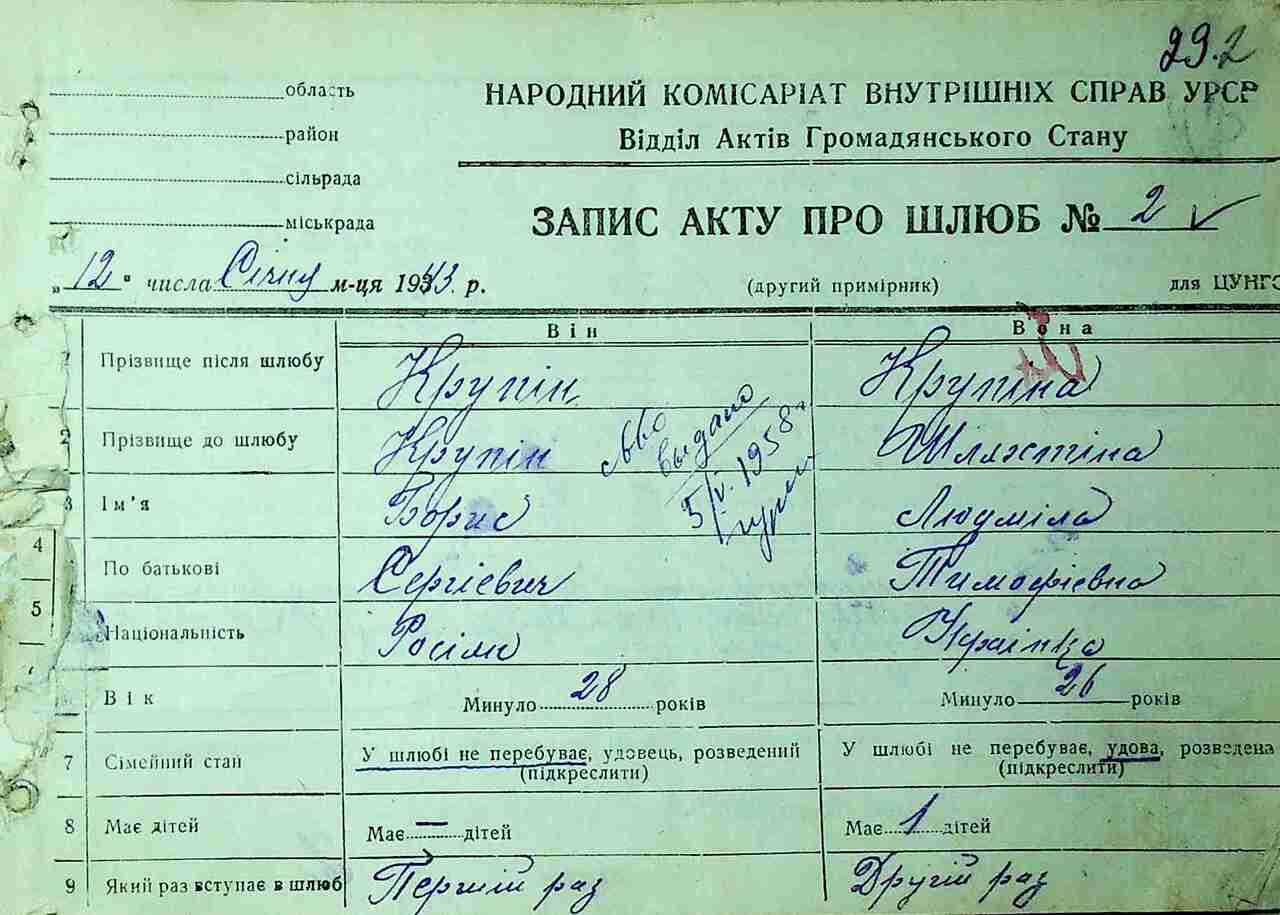 29.2
область
район
сільрада
міськрада
НАРОДНИЙ КОМІСАРІАТ ВНУТРІШНІХ СПРАВ УРСР
Відділ Актів Громадянського Стану
ЗАПИС АКТУ ПРО ШЛЮБ № 2
„12" числа Січня м-ця 1943 р.
(другий примірник)
для ЦУНГО
Він
Вона
1 Прізвище після шлюбу Крупін Крупіна
2 Прізвище до шлюбу Крупін Шляхтіна
св-во
выдано
5/V. 1958 г
3 Ім'я Борис Людміла
4 По батькові Сергієвич Тимофієвна
5 Національність Росіян Українка
Вік Минуло 28 років Минуло 26 років
7 Сімейний стан У шлюбі не перебуває, удовець, розведений У шлюбі не перебуває, удова, розведена
(підкреслити) (підкреслити)
8 Має дітей Має — дітей Має 1 дітей
9 Який раз вступає в шлюб Перший раз Другій раз